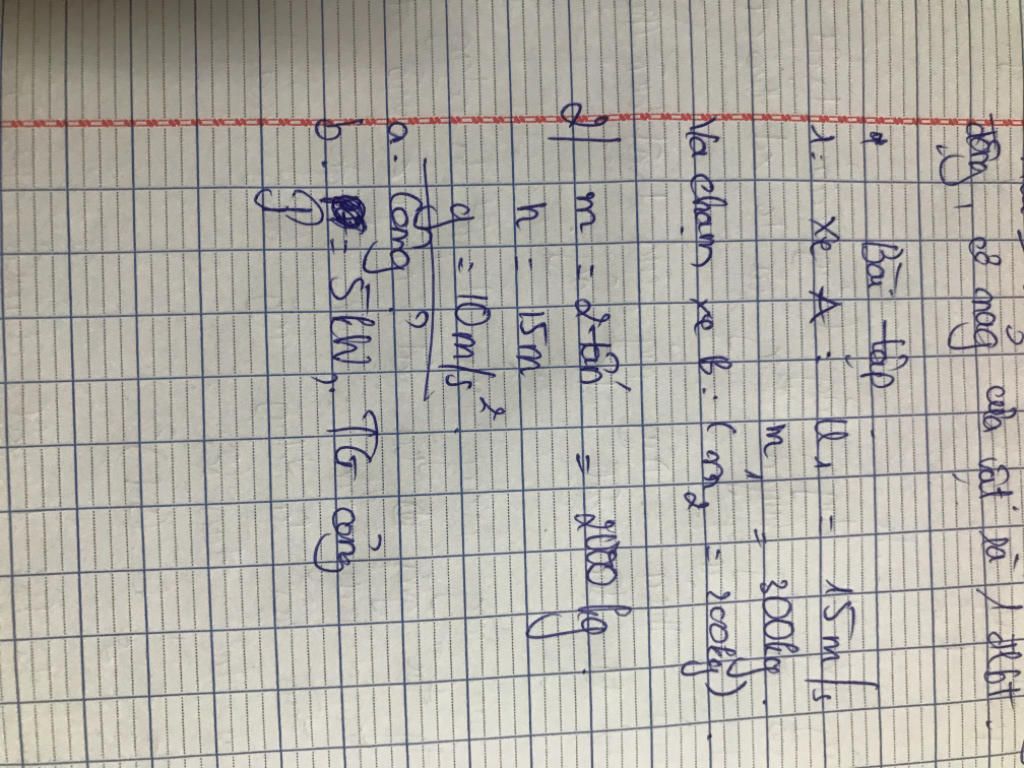 động, cơ năng của vật là 1 đlbt.
* Bài tập
1. xe A : v₁ = 15m/s
m₁ = 300kg.
Va chạm xe b. (m₂ = 200kg).
2) m = 2 tấn = 2000 kg.
h = 15m
g = 10m/s².
a. Công ?
b. P = 5kW, TG công